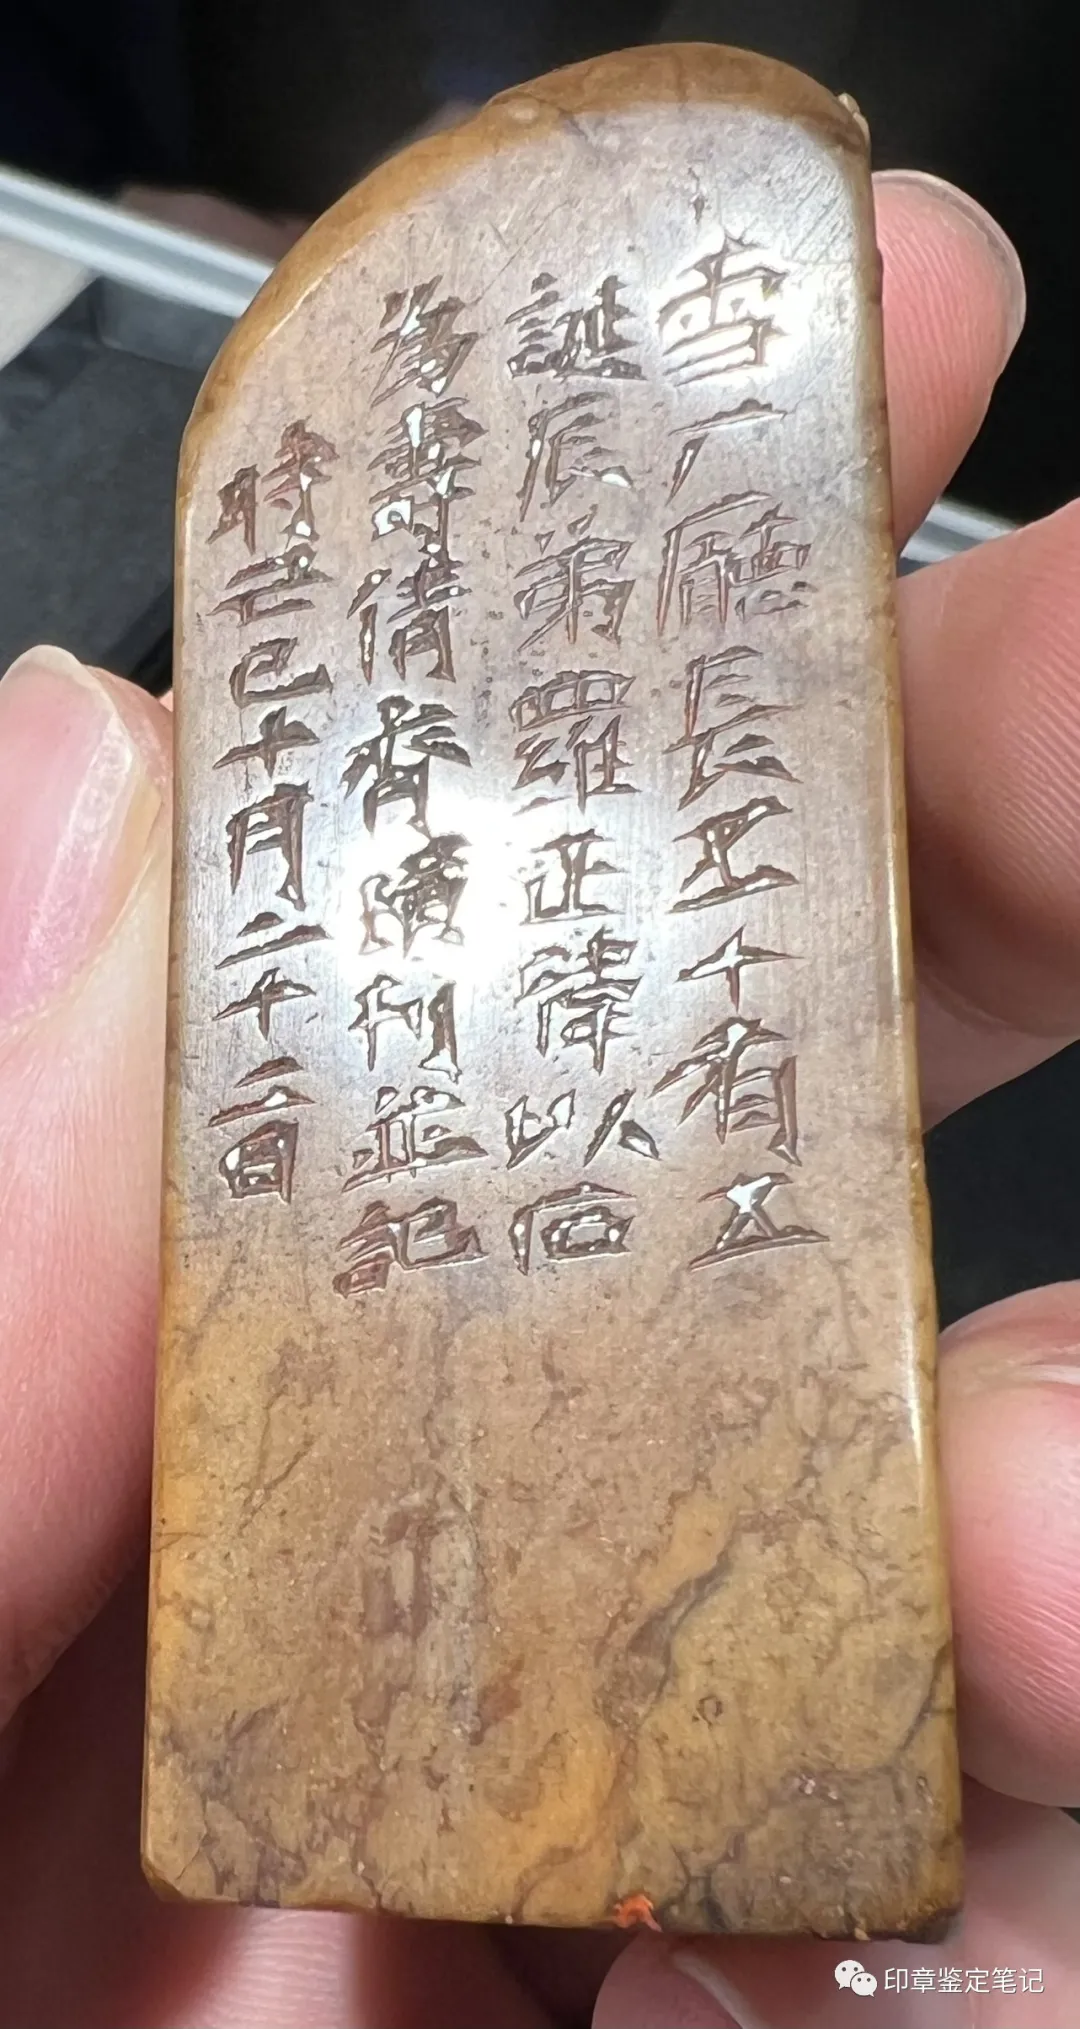 雪厂廳長五十有五
誕辰弟羅正緯以石
為壽倩齊璜刊並記
時己巳十月二十二日
印章鉴定笔记